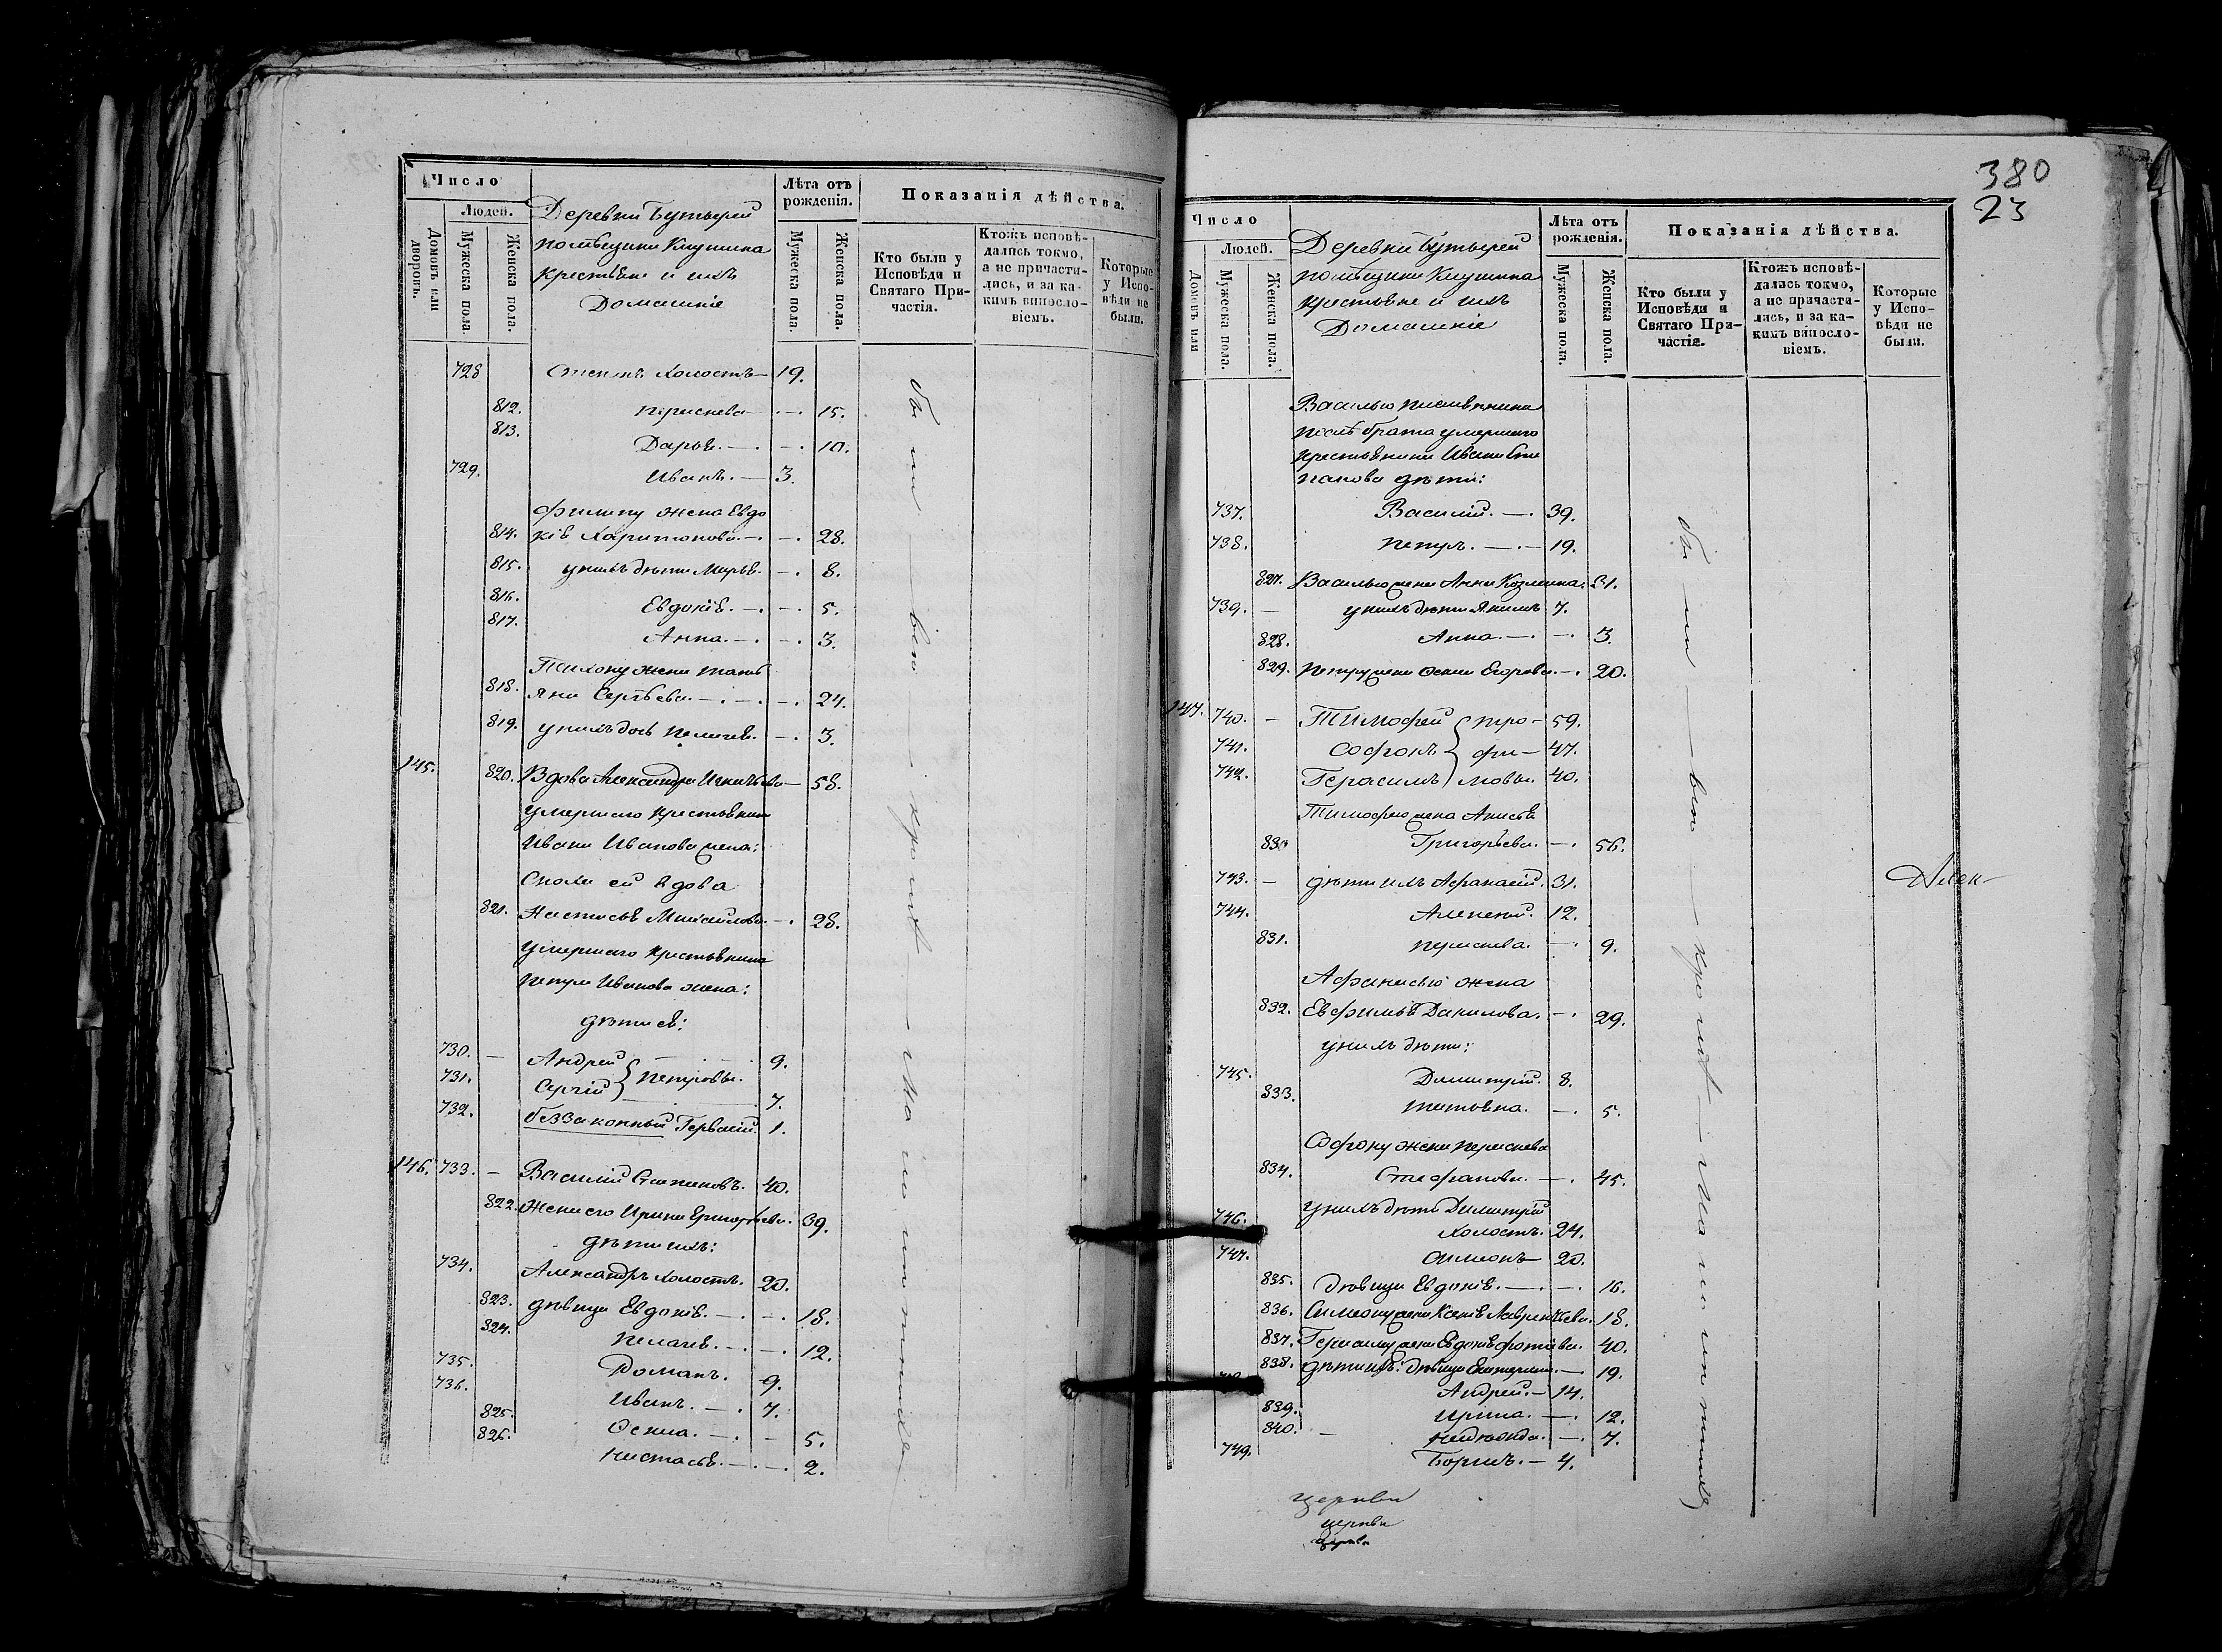 Число
Людей.
Домовъ или дворовъ.
Мужеска пола.
Женска пола.
Деревни Бутырей
помѣщика Кишкина
крестьяне и ихъ
Домашніе
Лѣта отъ рожденія.
Мужеска пола.
Женска пола.
Показанія дѣйства.
Кто были у Исповѣди и Святаго Причастія.
Ктожъ исповѣдались токмо, а не причастились, и за какимъ винословіемъ.
Которые у Исповѣди не были.
728 холостъ — 19.
812. — 15.
813. Дарья. — 10.
729. Иванъ. — 3.
Филипу жена Евдо
814. кія Харитонова. — 28.
815. у нихъ дѣти Марья. — 8.
816. Евдокія. — 5.
817. Анна. — 3.
Тихону жена Тать
818. яна Сергѣева. — 24.
819. у нихъ дочь Пелагея. — 3.
145. 820. Вдова Александра Игнатьева — 58.
умершаго крестьянина
Ивана Иванова жена:
Сноха ей вдова
821. Настасья Михайлова. — 28.
умершаго крестьянина
Петра Иванова жена:
дѣти ея:
730. — Андрей 9.
731. Сергій } Петровы. 7.
732. беззаконный Гервасій. 1.
146. 733. — Василій Степановъ. 40.
822. Жена его Ирина Григорьева. 39.
дѣти ихъ:
734. Александръ холостъ. 20.
823. дѣвица Евдокія. — 18.
824. Пелагея. — 12.
735. Романъ. 9.
736. Иванъ. — 7.
825. Ксенія. — 5.
826. Настасья. — 2.
380
23
Число
Людей.
Домовъ или
Мужеска пола.
Женска пола.
Деревни Бутырей
помѣщика Кишкина
крестьяне и ихъ
Домашніе
Лѣта отъ рожденія.
Мужеска пола.
Женска пола.
Показанія дѣйства.
Кто были у Исповѣди и Святаго Причастія.
Ктожъ исповѣдались токмо, а не причастились, и за какимъ винословіемъ.
Которые у Исповѣди не были.
Василью племянники
послѣ брата умершаго
крестьянина Ивана Сте
панова дѣти:
737. Василій. — 39.
738. Петръ. — 19.
827. Василью жена Анна Козмина. 31.
739. — у нихъ дѣти Акимъ 7.
828. Анна. — 3.
829. Петру жена Ксенія Егорова. — 20.
147. 740. — Тимофей } Тро — 59.
741. Софронъ } фи — 47.
742. Герасимъ } мовы. 40.
Тимофею жена Анисья
830 Григорьева. — 56.
743. — дѣти ихъ Афанасій. 31.
744. Алексѣй. 12.
831. — 9.
Афанасью жена
832. Евфимья Данилова. — 29.
у нихъ дѣти:
745. Димитрій. 8.
833. Татьяна. — 5.
Софрону жена
834. Стефанова. — 45.
746. у нихъ дѣти Димитрій
холостъ. 24.
747. Симеонъ — 20.
835. дѣвица Евдокія. — 16.
836. Симеону жена Ксенія Лаврентьева. 18.
837. Герасиму жена Евдокія Фотіева. 40.
838. дѣти ихъ: дѣвица Екатерина. — 19.
Андрей. — 14.
839. Ирина. — 12.
840. Надежда. — 7.
749. Борисъ. — 4.
Алек-
церкви
церкви